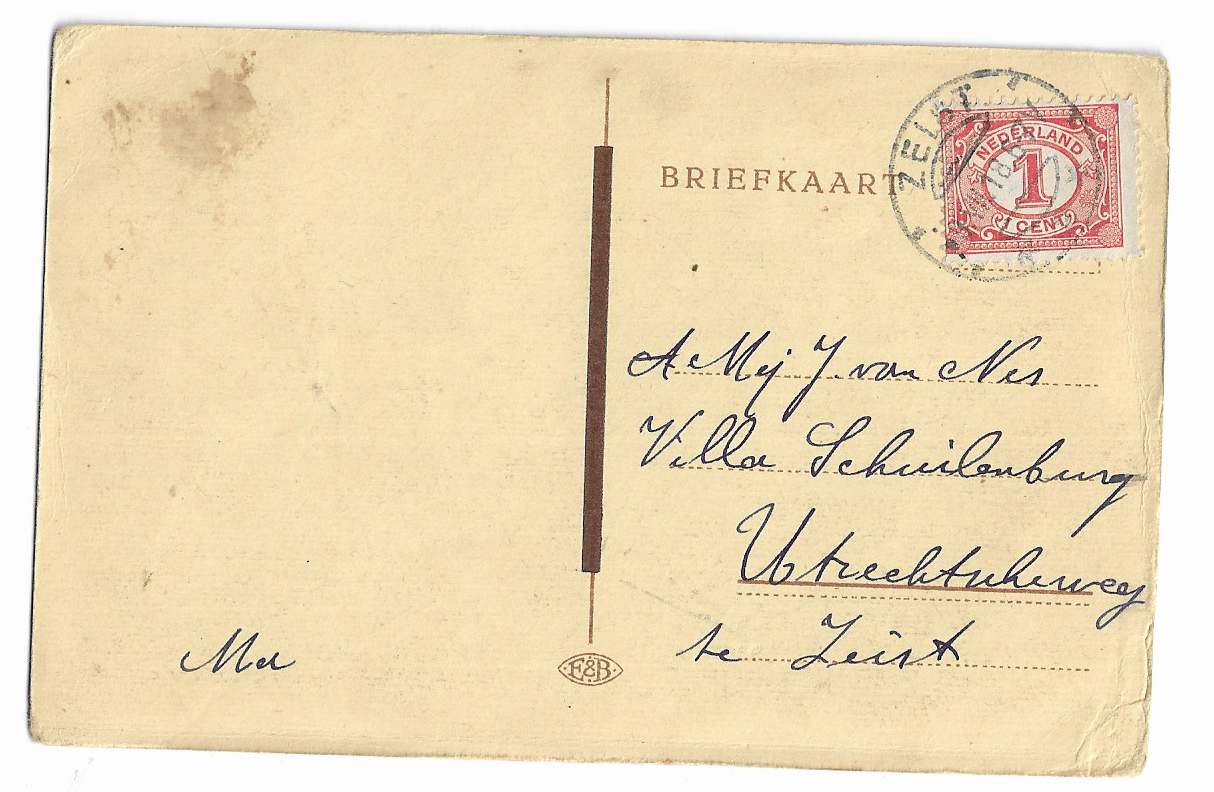 BRIEFKAART
ZEIST
NEDERLAND
1
1 CENT
A Mej J. van Nes
Villa Schuilenburg
Utrechtscheweg
te Zeist
Ma
E&B